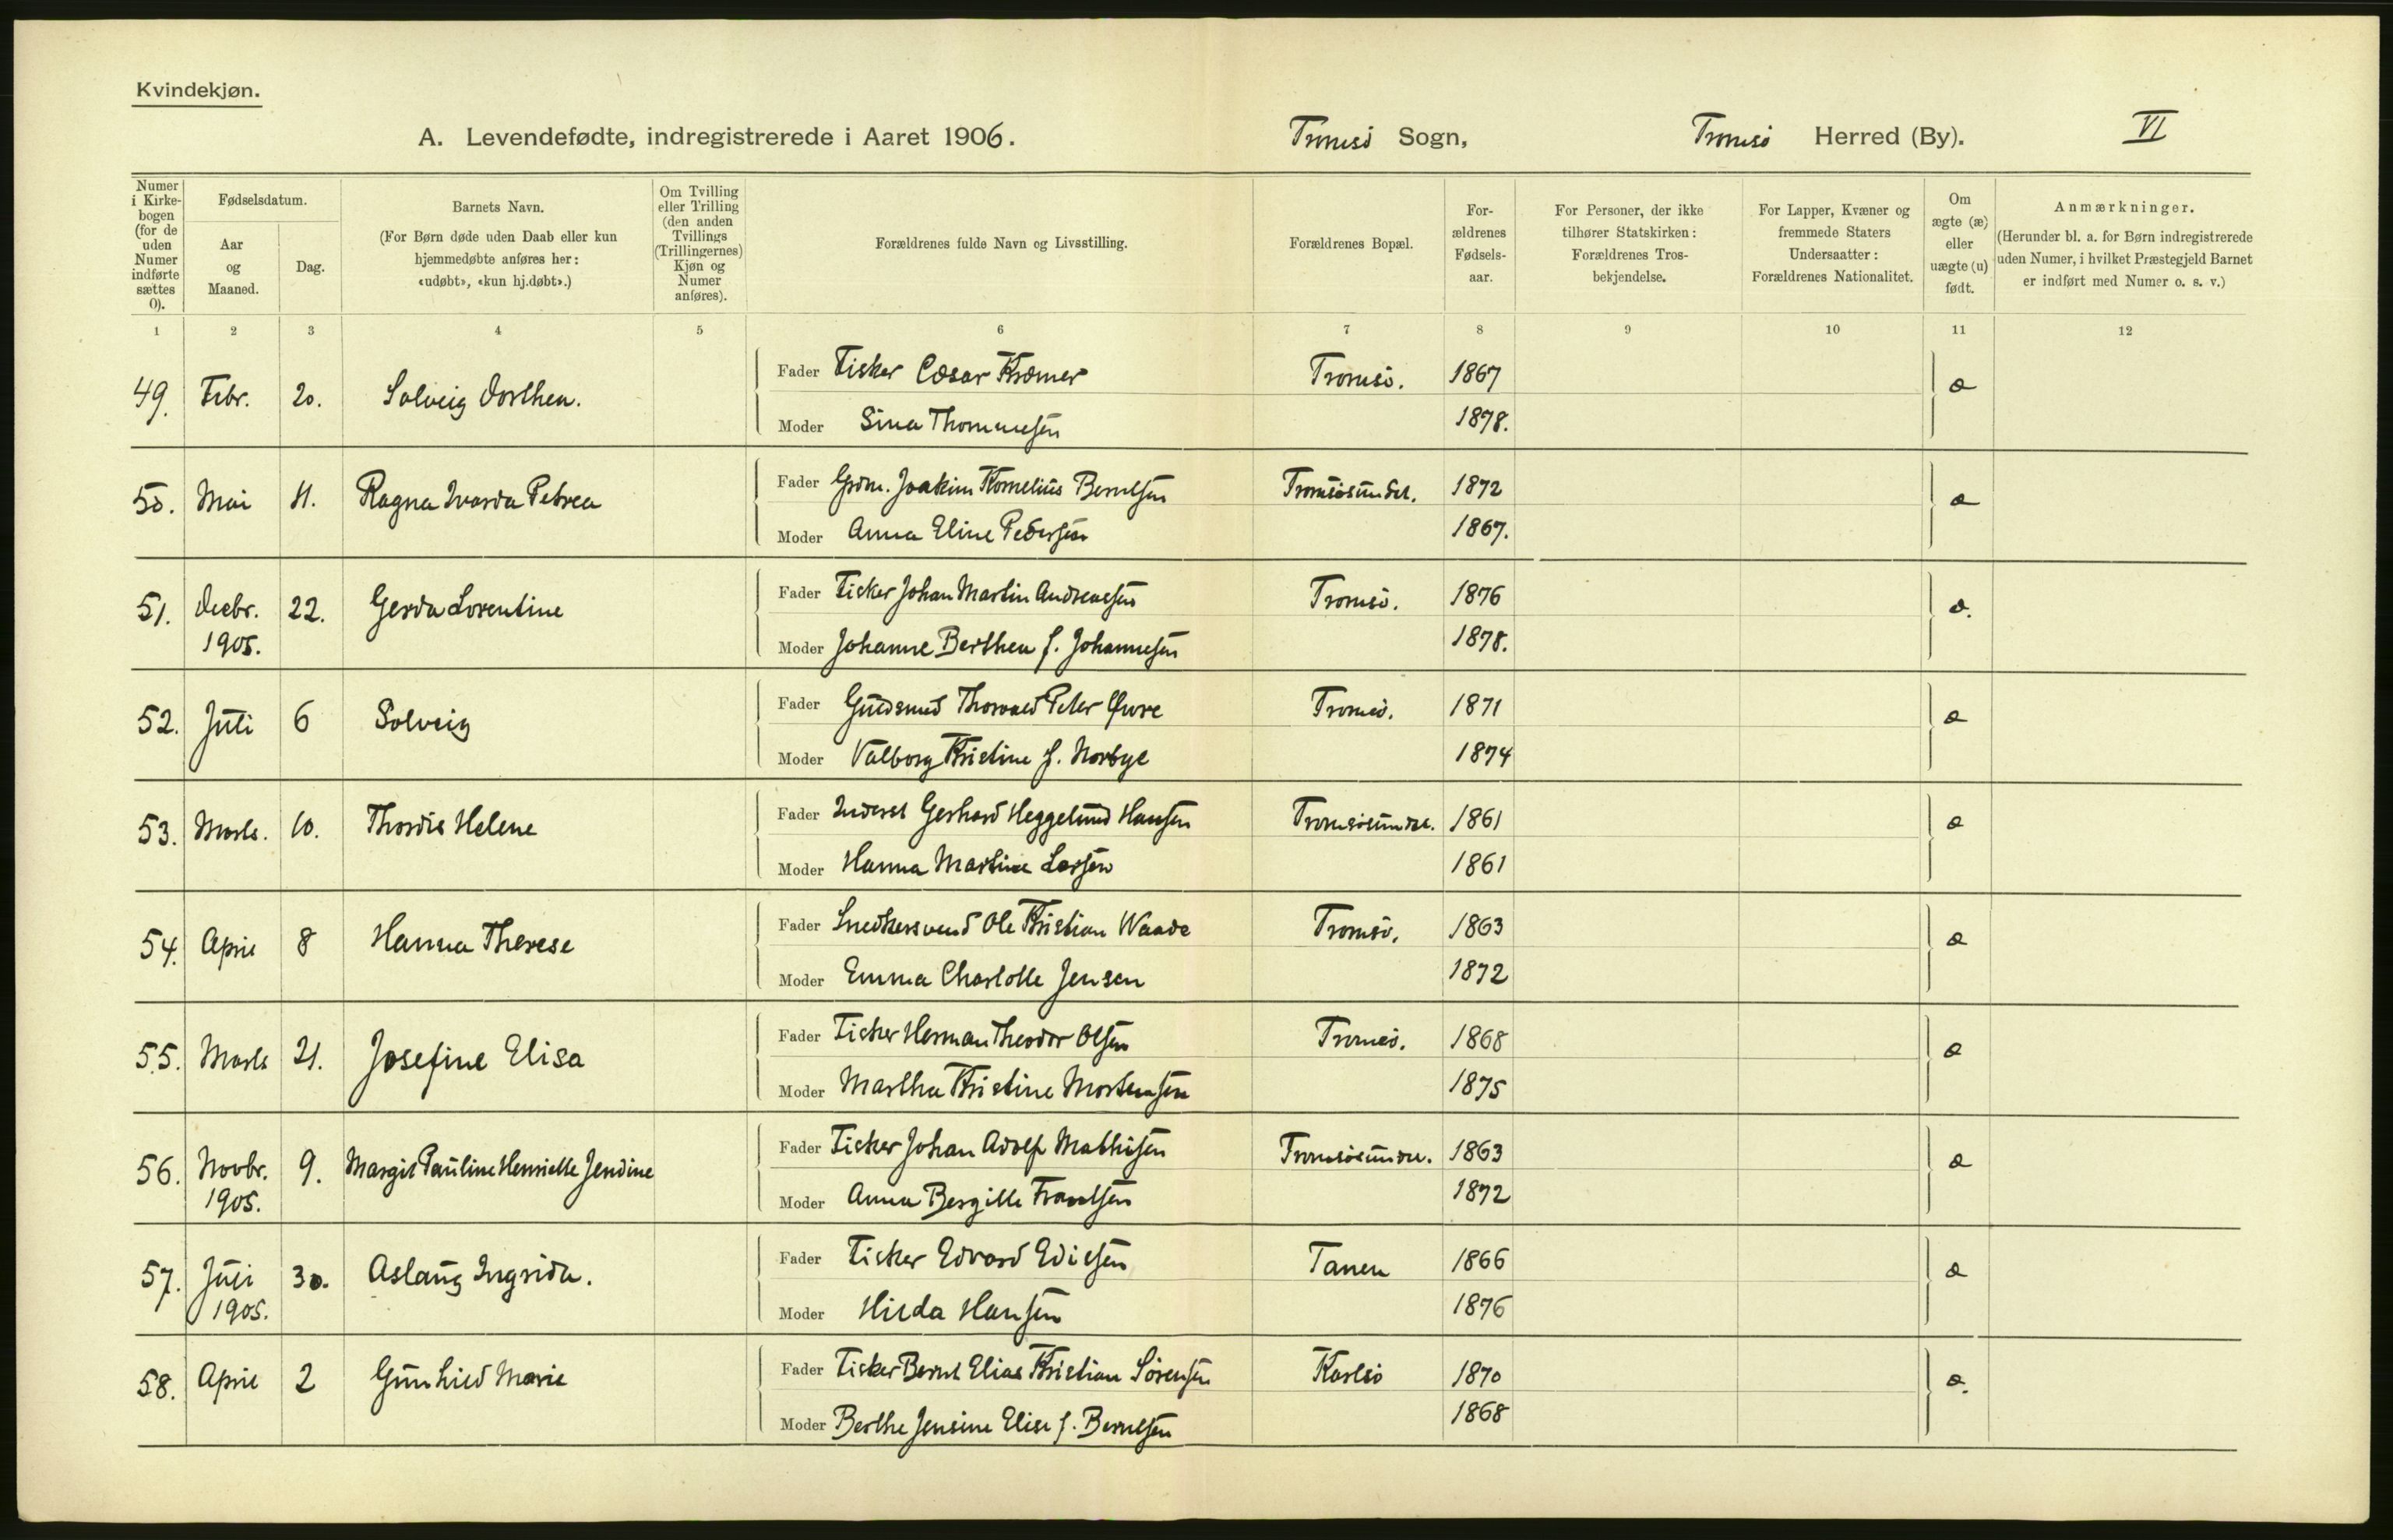 Kvindekjøn.
A. Levendefødte, indregistrerede i Aaret 1906. Tromsö Sogn, Tromsö Herred (By). VI
Numer i Kirkebogen (for de uden Numer indførte sættes 0).
Fødselsdatum.
Aar og Maaned.
Dag.
Barnets Navn.
(For Børn døde uden Daab eller kun hjemmedøbte anføres her: «udøbt», «kun hj.døbt».)
Om Tvilling eller Trilling (den anden Tvillings (Trillingernes) Kjøn og Numer anføres).
Forældrenes fulde Navn og Livsstilling.
Forældrenes Bopæl.
For-ældrenes Fødsels-aar.
For Personer, der ikke tilhører Statskirken: Forældrenes Tros-bekjendelse.
For Lapper, Kvæner og fremmede Staters Undersaatter: Forældrenes Nationalitet.
Om ægte (æ) eller uægte (u) født.
Anmærkninger.
(Herunder bl. a. for Børn indregistrerede uden Numer, i hvilket Præstegjeld Barnet er indført med Numer o. s. v.)
1 2 3 4 5 6 7 8 9 10 11 12
49. Febr. 20. Solveig Dorthea. Fader Fisker Cæsar Kræmer Tromsö. 1867 æ
Moder Sina Thomnesen 1878.
50. Mai 11. Ragna Ivarda Petrea Fader Grdm. Joakim Kornelius Berntsen Tromsösundet. 1872 æ
Moder Anna Eline Pedersen 1867.
51. Decbr. 1905. 22. Gerda Lorentine Fader Fisker Johan Martin Andreassen Tromsö. 1876 æ.
Moder Johanne Berthea f. Johannesen 1878.
52. Juli 6 Solveig Fader Guldsmed Thorvald Peter Qvore Tromsö. 1871 æ
Moder Valborg Kristine f. Norbye 1874
53. Marts. 10. Thordis Helene Fader Inderst Gerhard Heggelund Hansen Tromsösundet. 1861 æ
Moder Hanna Martine Larsen 1861
54. April 8 Hanna Therese Fader Snedkersvend Ole Kristian Waade Tromsö. 1863 æ
Moder Emma Charlotte Jensen 1872
55. Marts 21. Josefine Elisa Fader Fisker Herman Theodor Olsen Tromsö. 1868 æ
Moder Martha Kristine Mortensen 1875
56. Novbr. 1905. 9. Margit Pauline Henriette Jendine Fader Fisker Johan Adolf Mathisen Tromsösundet. 1863 æ
Moder Anna Bergitte Frantsen 1872
57. Juli 1905. 30. Aslaug Ingrida. Fader Fisker Edvard Edissen Tanen 1866 æ
Moder Hilda Hansen 1876
58. April 2 Gunhild Marie Fader Fisker Bernt Elias Kristian Sörensen Karlsö 1870 æ.
Moder Berthe Jensine Elise f. Berntsen 1868